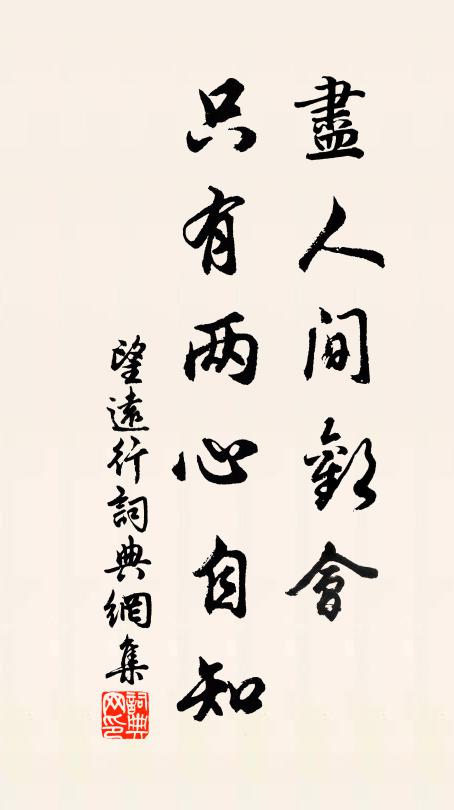 盡人間歡會
只有两心自知
望遠行詞典網集
詞典网印